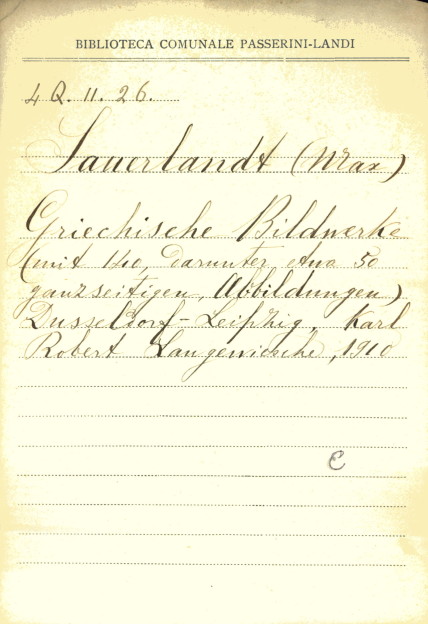 BIBLIOTECA COMUNALE PASSERINI-LANDI
4 Q. 11. 26.
Sauerlandt (Max)
Griechische Bildwerke
(mit 140, darunter etwa 50
ganzseitigen, Abbildungen)
Dusseldorf-Leipzig, Karl
Robert Langewiesche, 1910
C